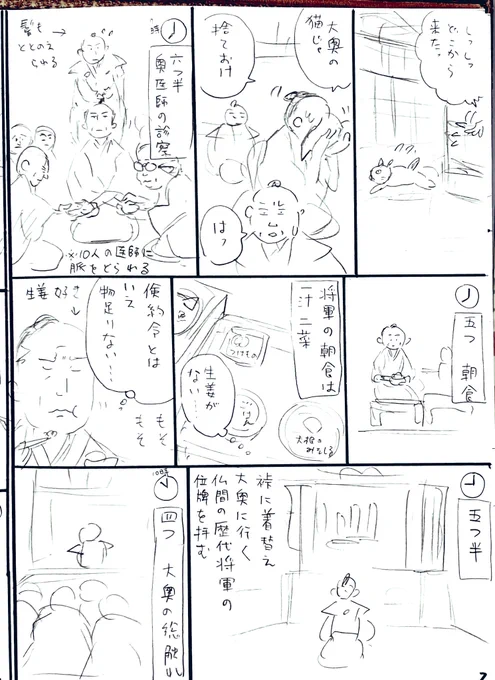 しっしっ
どこから
来た。
大奥の
猫じゃ
捨ておけ
はっ
六つ半
奥医師の診察
髪を
ととのえ
られる
※10人の医師に
脈をとられる
五つ 朝食
将軍の朝食は
一汁二菜
つけもの
ごはん
大根の
みそしる
生姜が
ない…
倹約令とは
いえ
物足りない…
生姜好き
もそ
もそ
五つ半
裃に着替え
大奥に行く
仏間の歴代将軍の
位牌を拝む
四つ 大奥の総触れ
2